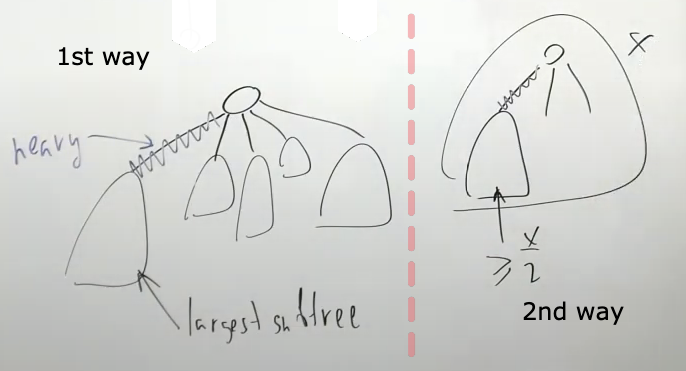 1st way
heavy
largest subtree
x
≥ x/2
2nd way